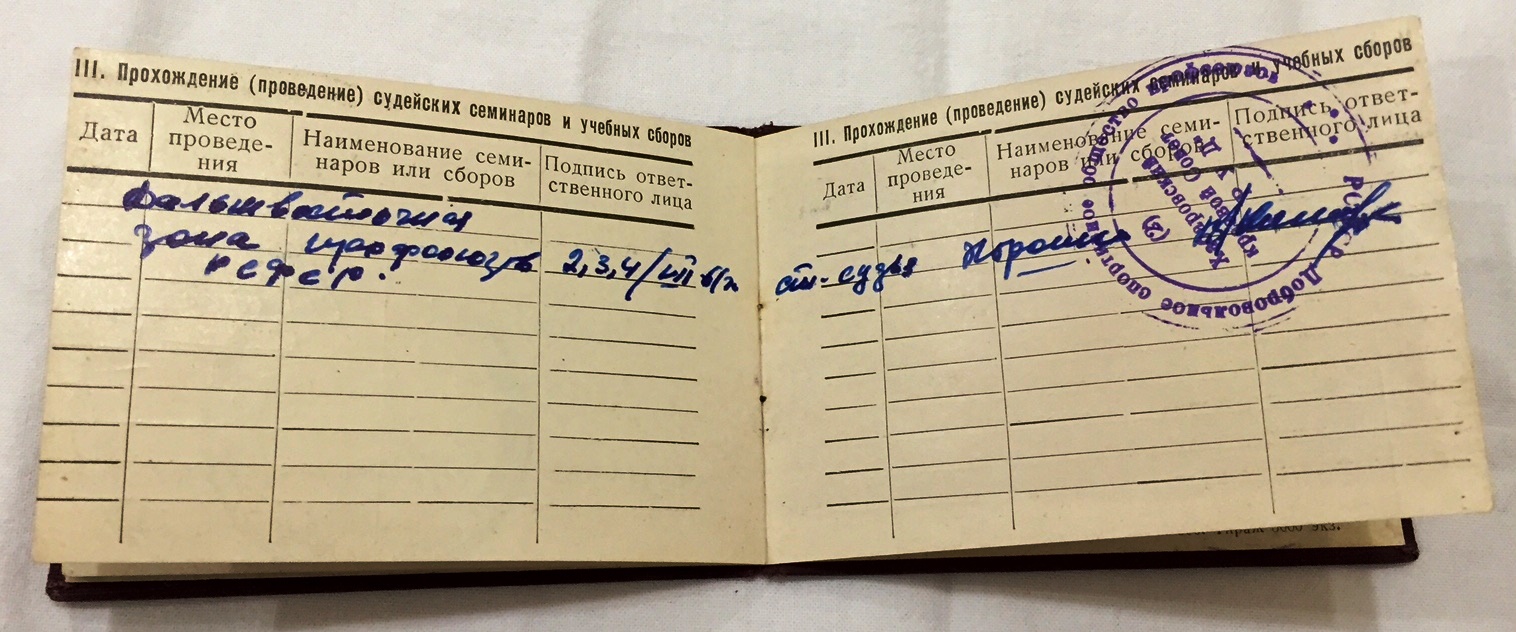 III. Прохождение (проведение) судейских семинаров и учебных сборов
Дата
Место
проведе-
ния
Наименование семи-
наров или сборов
Подпись ответ-
ственного лица
Дальневосточная
зона профсоюзов
РСФСР.
2, 3, 4/VIII-61г
III. Прохождение (проведение) судейских семинаров и учебных сборов
Дата
Место
проведе-
ния
Наименование семи-
наров или сборов
Подпись ответ-
ственного лица
ст. судья
Хорошо
Добровольное спортивное общество профсоюзов
Хабаровский
краевой Совет
(2)
Тираж 6000 экз.